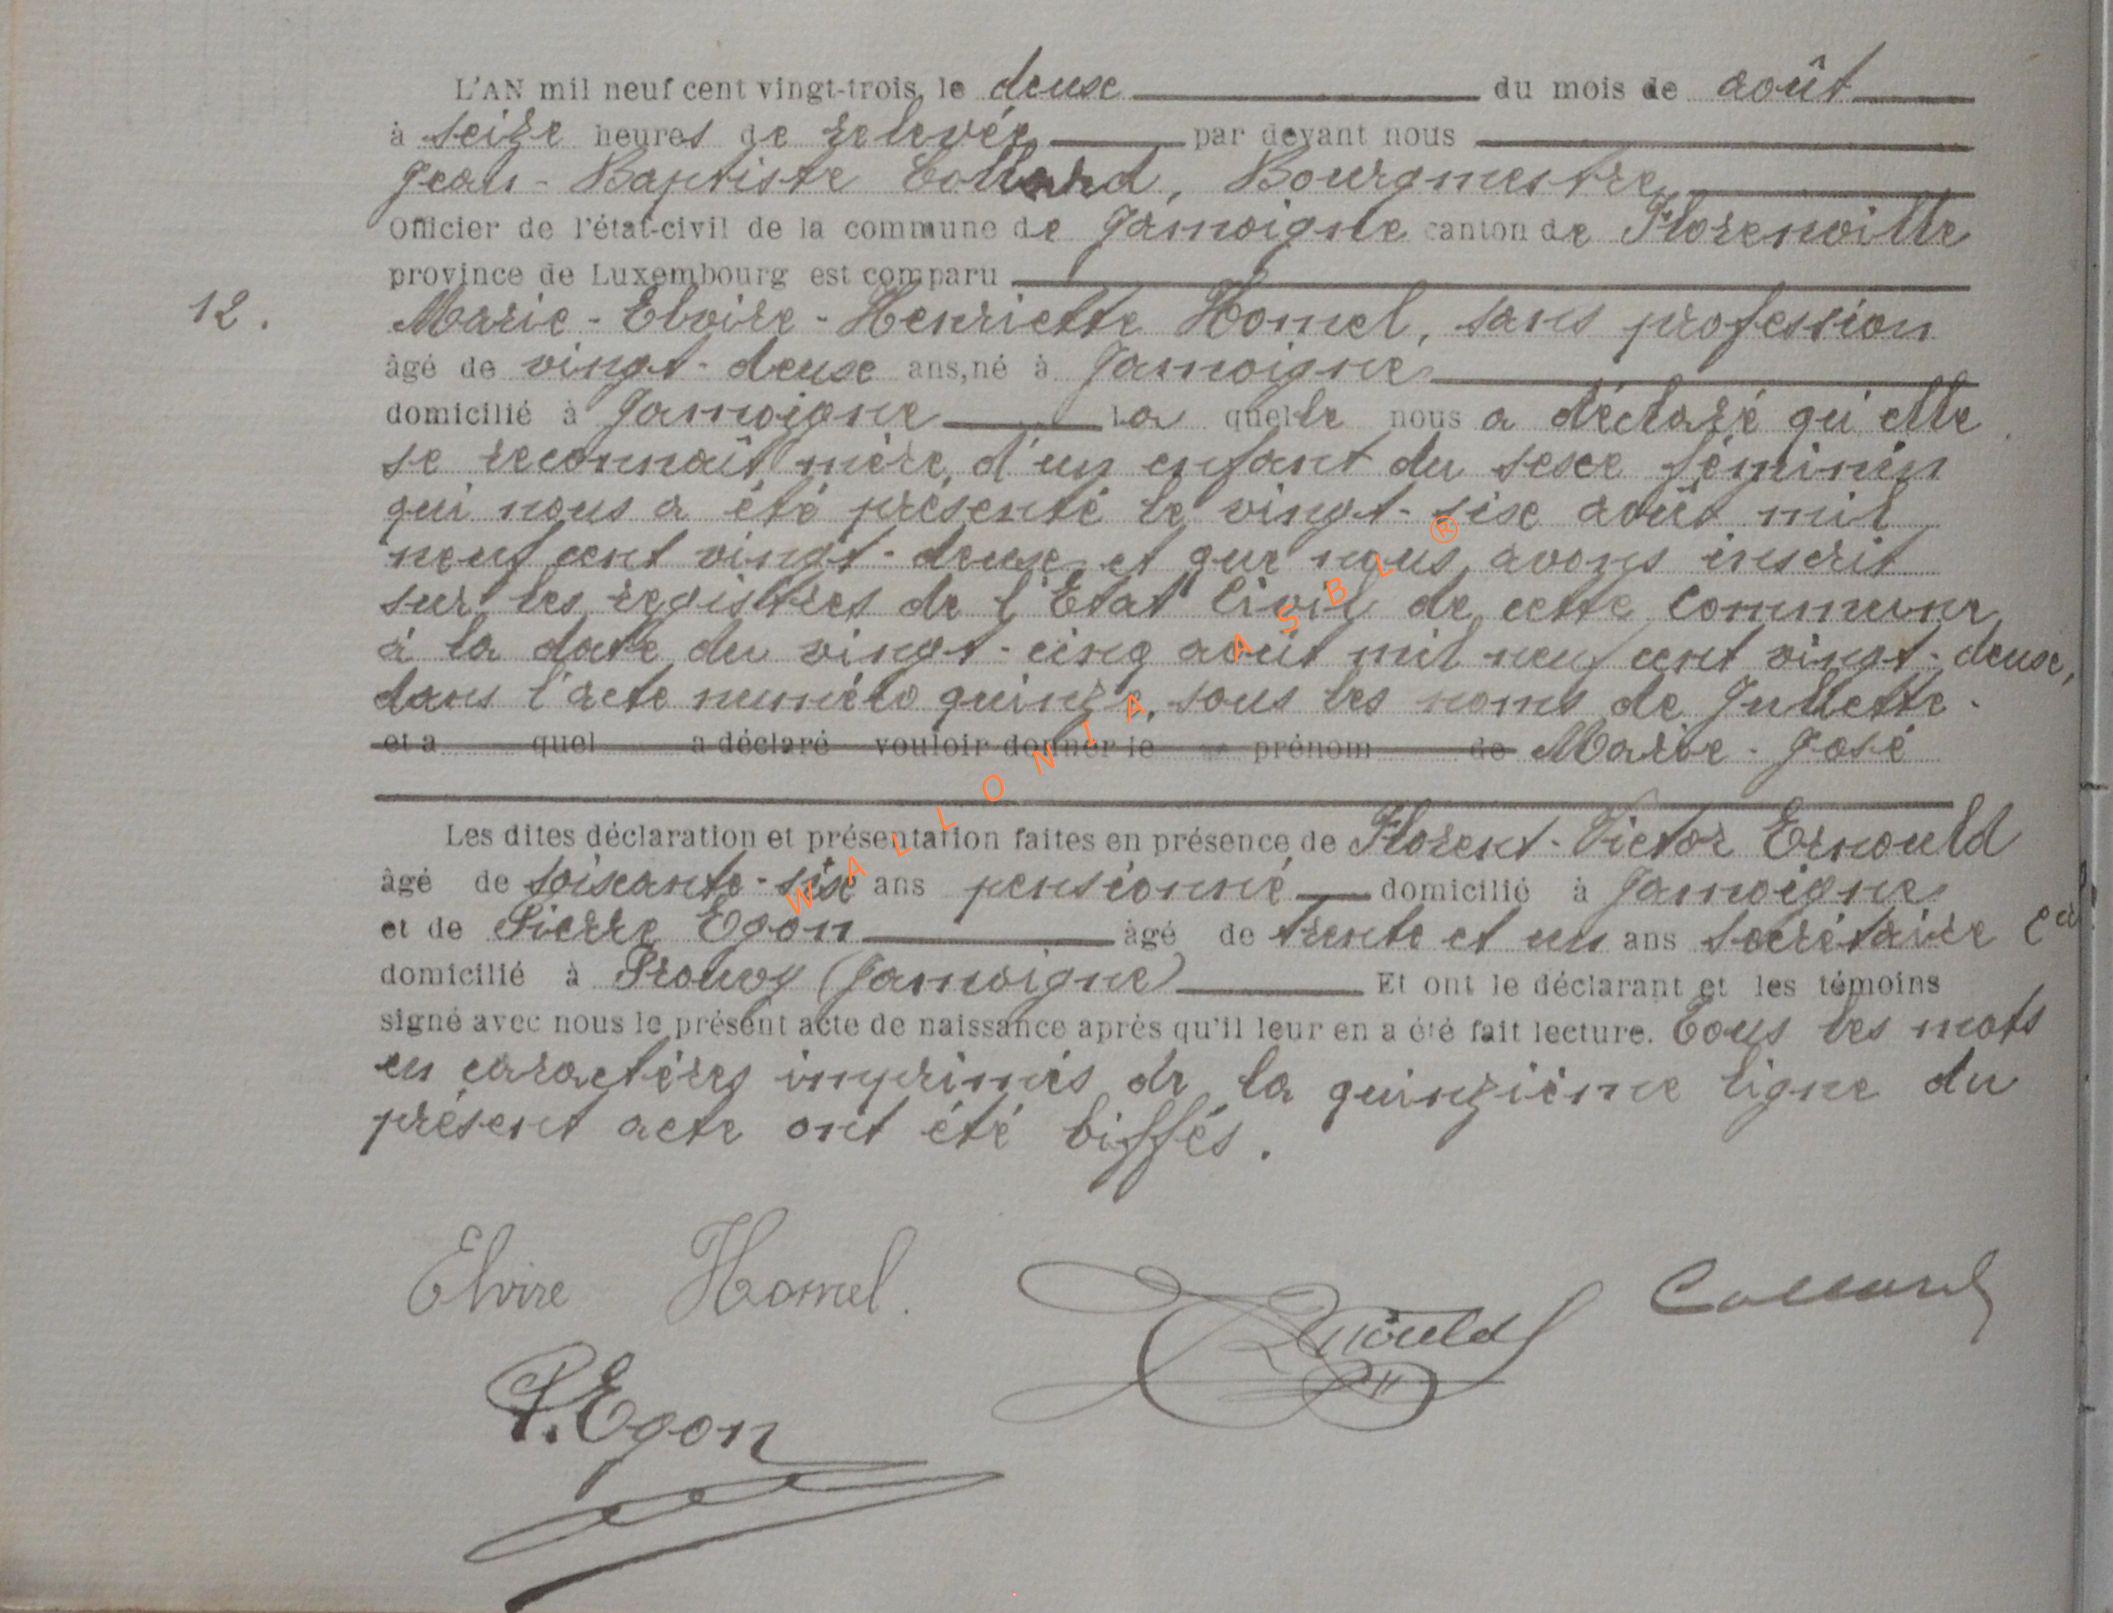 L'AN mil neuf cent vingt-trois, le deux du mois de août
à seize heures de relevée par devant nous
Jean-Baptiste Collard, Bourgmestre
Officier de l'état-civil de la commune de Jamoigne canton de Florenville
province de Luxembourg est comparu
12. Marie-Elvire-Henriette Homel, sans profession
âgé de vingt-deux ans, né à Jamoigne
domicilié à Jamoigne la quelle nous a déclaré qu'elle
se reconnaît mère d'un enfant du sexe féminin
qui nous a été présenté le vingt-six août mil
neuf cent vingt-deux et que nous avons inscrit
sur les registres de l'Etat Civil de cette Commune
à la date du vingt-cinq août mil neuf cent vingt-deux,
dans l'acte numéro quinze, sous les noms de Juliette-
et a quel a déclaré vouloir donner le prénom de Marie-José
Les dites déclaration et présentation faites en présence de Florent-Victor Ernould
âgé de soixante-six ans pensionné domicilié à Jamoigne
et de Pierre Egon âgé de trente et un ans secrétaire Cal
domicilié à Prouvy (Jamoigne) Et ont le déclarant et les témoins
signé avec nous le présent acte de naissance après qu'il leur en a été fait lecture. Tous les mots
en caractères imprimés de la quinzième ligne du
présent acte ont été biffés.
Elvire Homel. Ernould Collard
P. Egon
WALLONIA ASBL ®